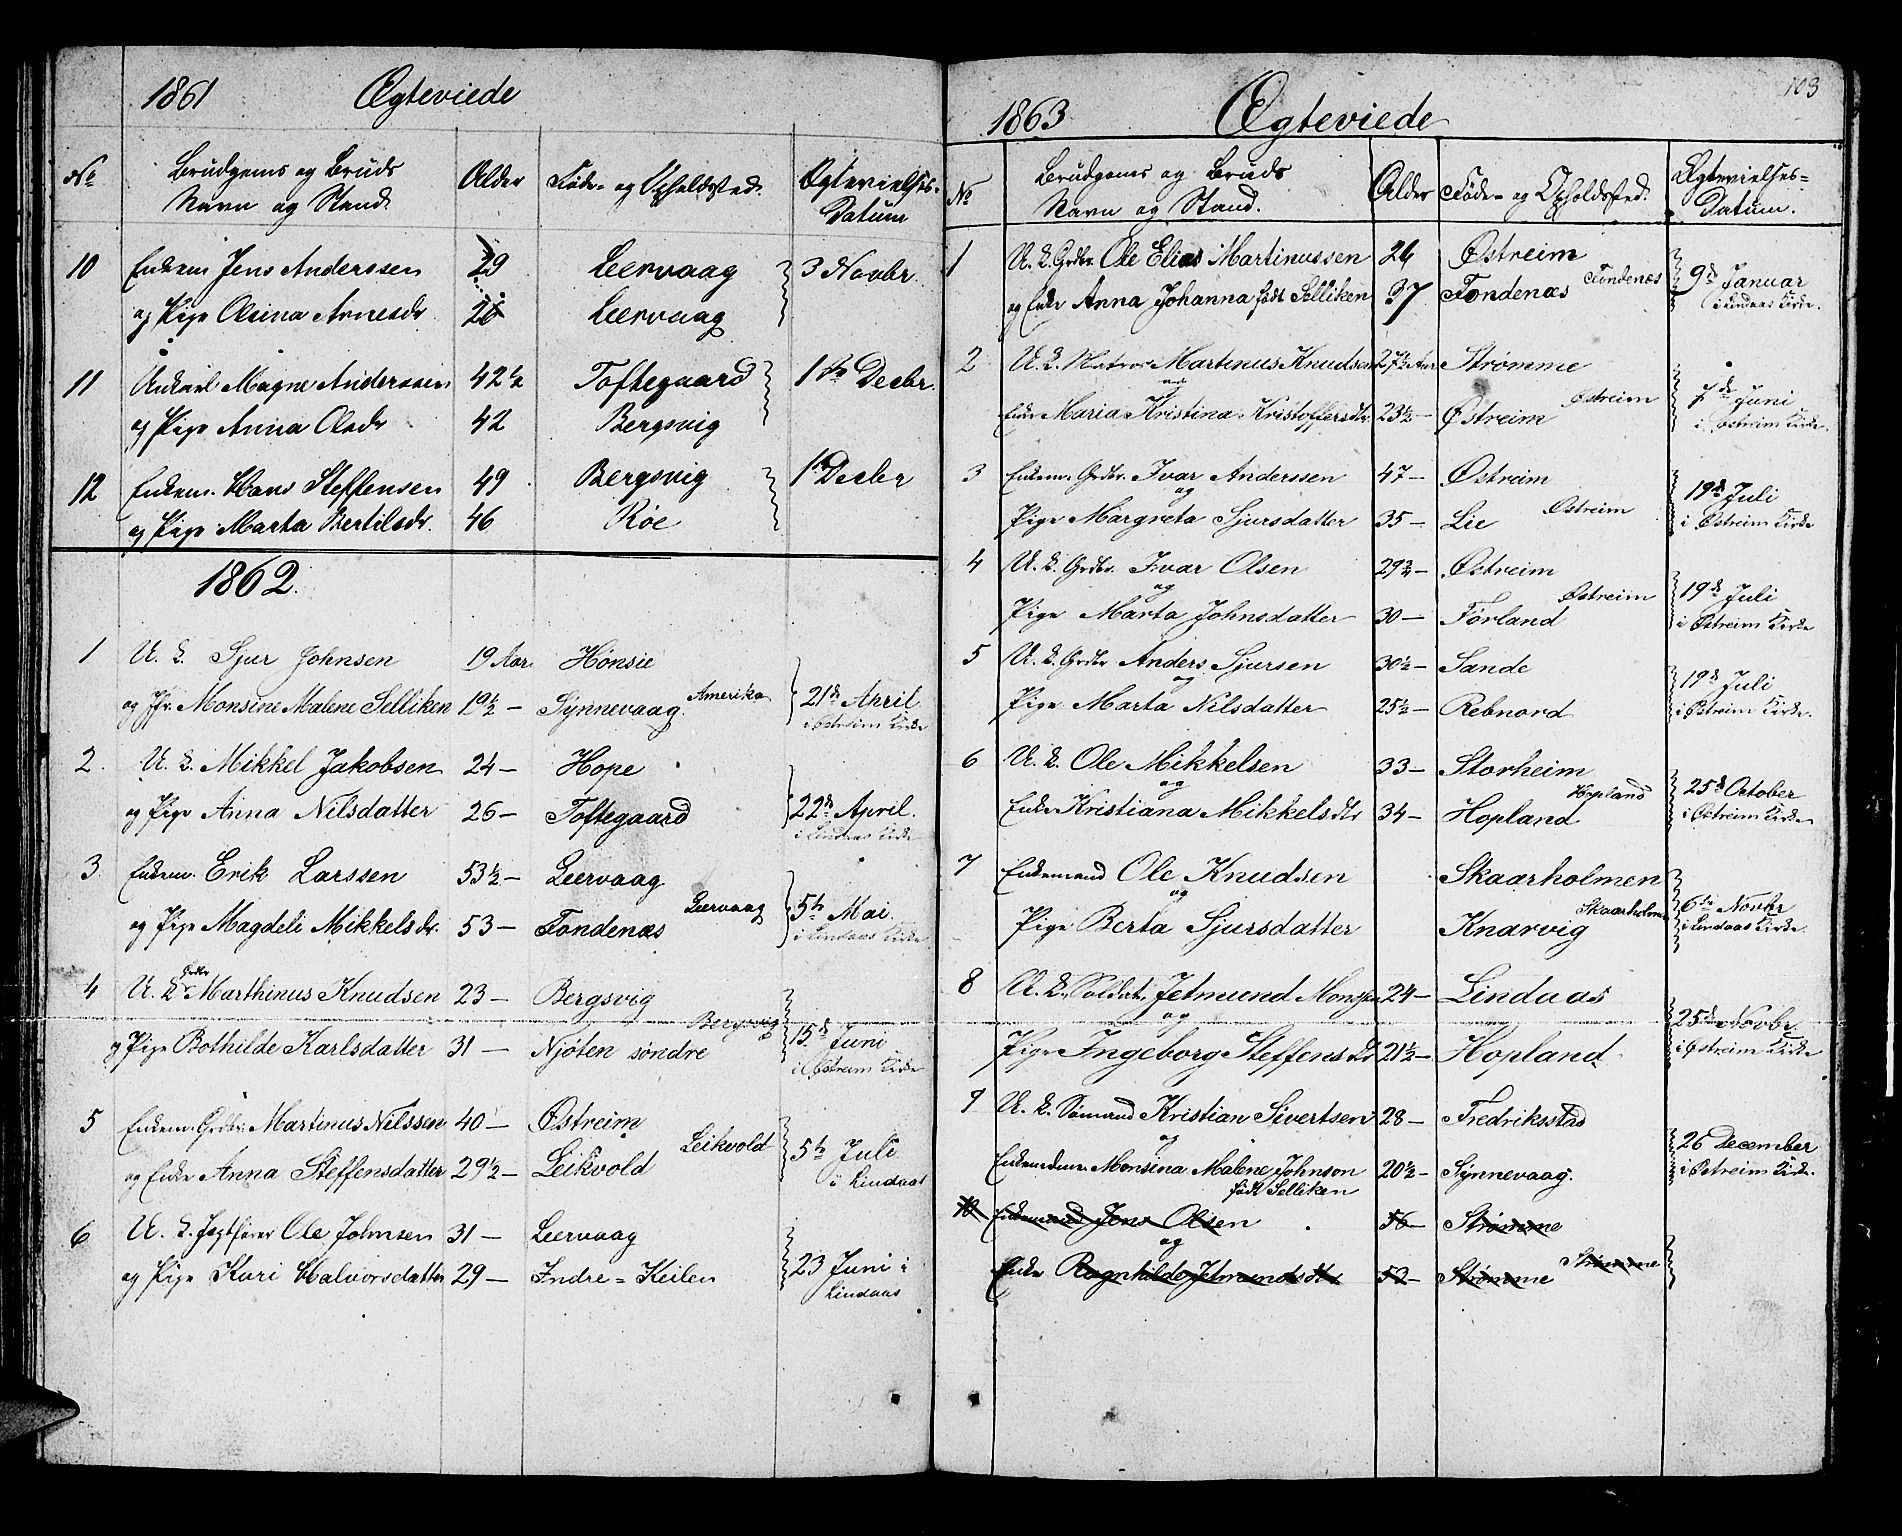 1861 Ægteviede
No Brudgoms og Bruds Navn og Stand. Alder Føde- og Opholdssted. Ægtevielses-Datum
10 Enkem Jens Anderssen 29 Leervaag 3 Novbr.
og Pige Olsina Arnesdr 26 Leervaag
11 Unkarl Magne Anderssen 42½ Toftegaard 1ste Decbr.
og Pige Anna Olsdr 42 Bergsvig
12 Enkem. Hans Steffensen 49 Bergsvig 1 Decbr
og Pige Marta Bertilsdr. 46 Røe
1862.
1 U. K. Sjur Johnsen 19 Aar Hönsie
og Jfr. Monsine Malene Selliken 19½ — Synnevaag. Amerika 21de April
i Østreim Kirke
2. U. K. Mikkel Jakobsen 24 — Hope
og Pige Anna Nilsdatter 26 — Toftegaard 22de April.
i Lindaas Kirke
3. Enkem. Erik Larssen 53½ — Leervaag
og Pige Magdeli Mikkelsdr. 53 — Fondenæs Leervaag 5te Mai.
i Lindaas Kirke
4 U. K. Grdbr Marthinus Knudsen 23 — Bergsvig
og Pige Bothilde Karlsdatter 31 — Njøten søndre Bergsvig 15de Juni
i Østreim Kirke
5 Enkem. Grdbr. Martinus Nilssen 40 — Østreim
og Enke Anna Steffensdatter 29½ — Leikvold Leikvold 5te Juli
i Lindaas
6 U. K. Jagtfører Ole Johnsen 31 — Leervaag
og Pige Kari Halvorsdatter 29 — Indre = Keilen 23 Juni i
Lindaas
103
1863 Ægteviede
No Brudgoms og Bruds Navn og Stand. Alder Føde- og Opholdssted. Ægtevielses=Datum.
1 U. K. Grdbr Ole Elias Martinussen 26 Østreim
og Enke Anna Johanna født Selliken 37 Fondenæs Fondenæs 9de Januar
i Lindaas Kirke.
2 U. K. Matros Martinus Knudsen 27½ Aar Strømme
og
Enke Maria Kristina Kristoffersdtr. 23½ — Østreim Østreim 7de Juni
i Østreim Kirke.
3 Enkem. Grdbr. Ivar Anderssen 47 — Østreim
og
Pige Margreta Sjursdatter 35 — Lie Østreim 19de Juli
i Østreim Kirke
4 U. K. Grdbr. Ivar Olsen 29¾ — Østreim
og
Pige Marta Johnsdatter 30 — Førland Østreim 19de Juli
i Østreim Kirke
5 U. K. Grdbr Anders Sjursen 30½ — Sande
og
Pige Marta Nilsdatter 25½ — Rebnord 19de Juli
i Østreim Kirke.
6 U. K. Ole Mikkelsen 33 — Storheim
og
Enke Kristiana Mikkelsdtr 34 — Hopland Hopland 25de October
i Østreim Kirke
7 Enkemand Ole Knudsen Skaarholmen
og
Pige Berta Sjursdatter Knarvig Skaarholmen 6te Novbr
i Lindaas Kirke.
8 U. K. Soldat, Jetmund Monssen 24 — Lindaas
og
Pige Ingeborg Steffensdtr 21½ — Hopland 25de Novbr.
i Østreim Kirke
9 U. K. Sømand Kristian Sivertsen 28 — Fredriksstad
og
Enkemdme. Monsina Malene Johnson 20½ — Synnevaag. 26 December
i Østreim Kirke.
født Selliken
10 Enkemand Jens Olsen 56 — Strømme
og
Enke Ragnhilde Jetmundsdtr 53 — Strømme Strømme